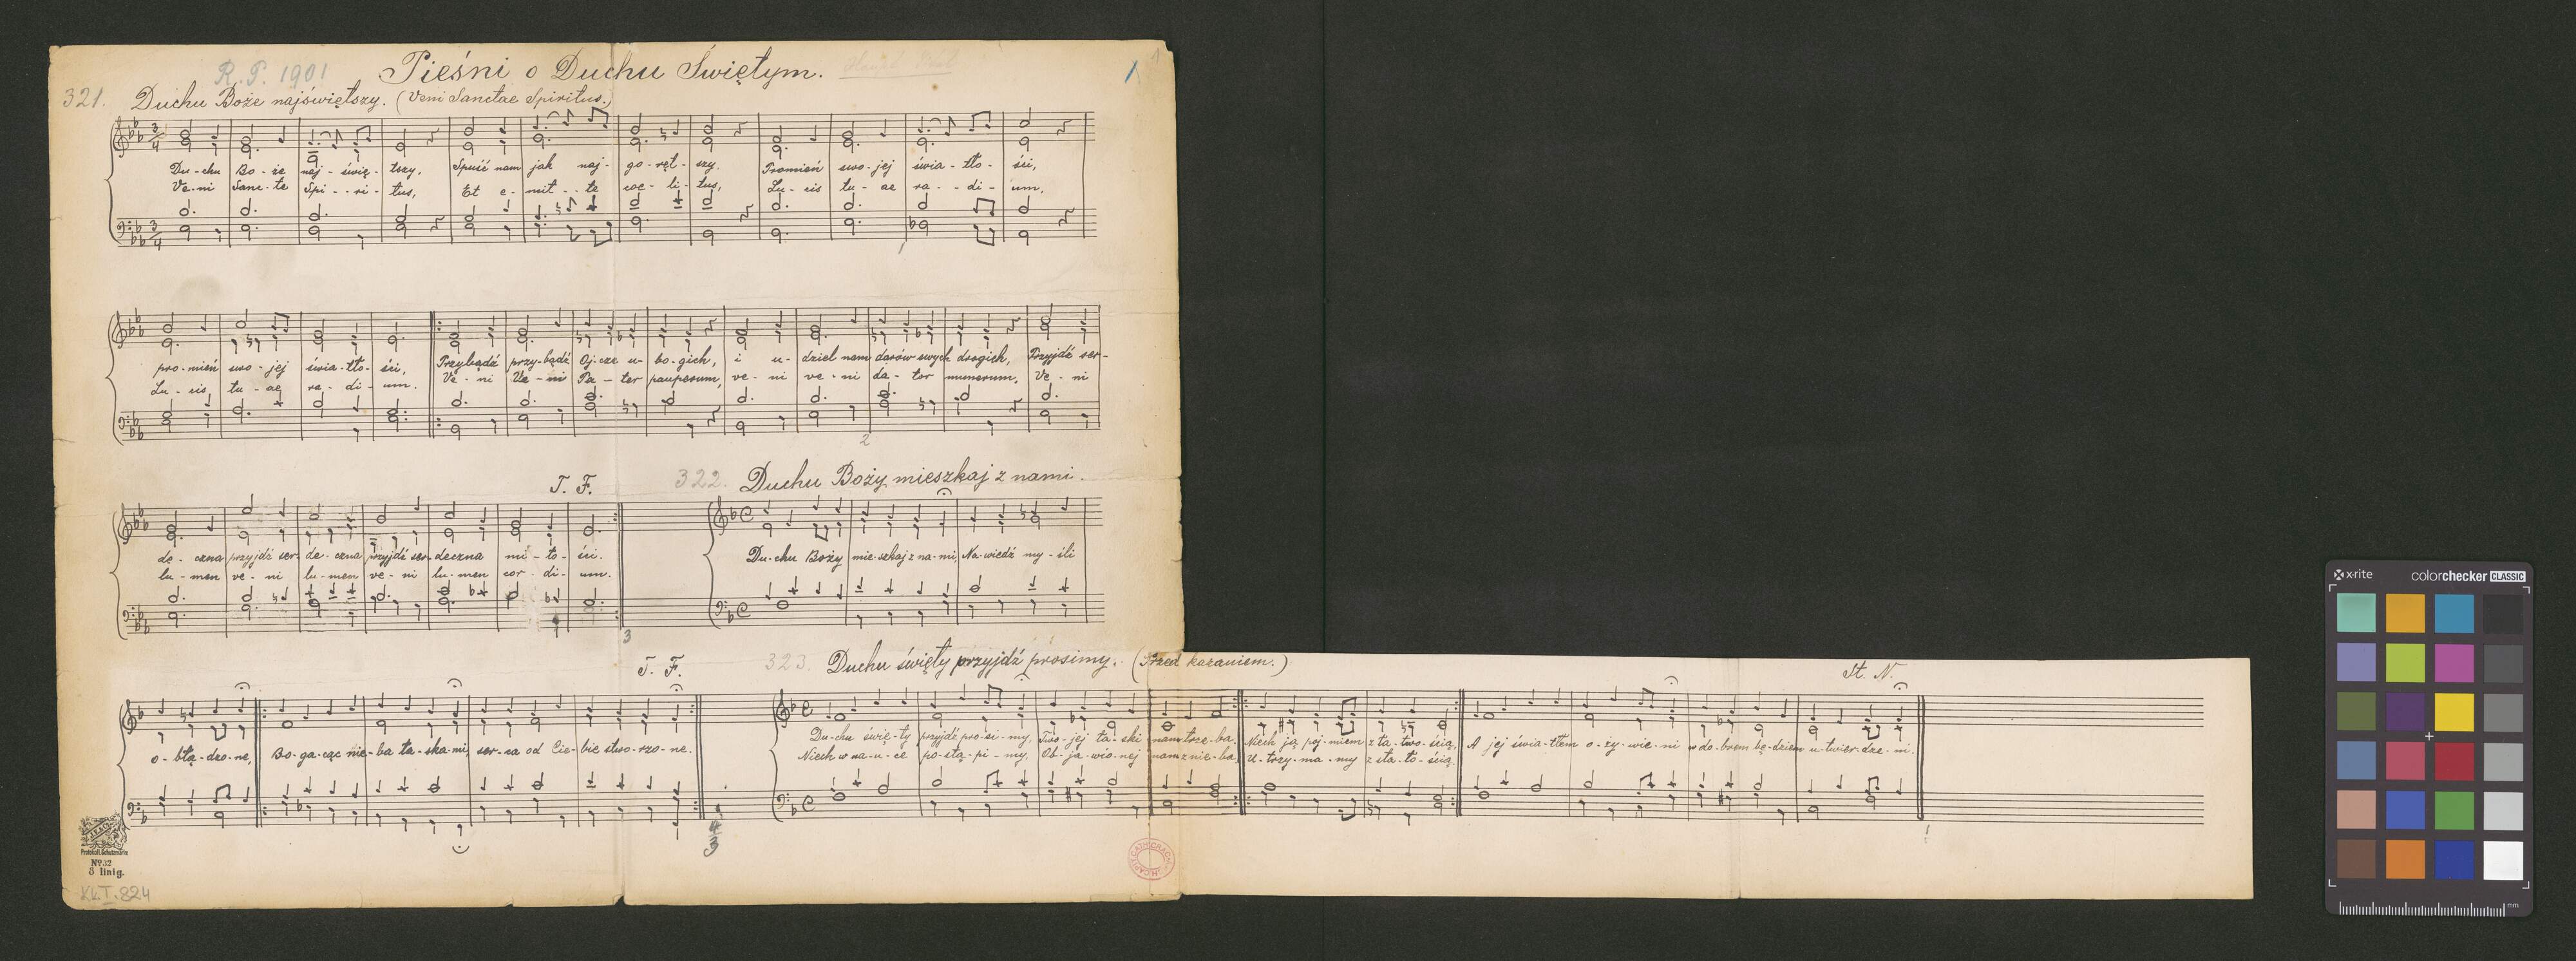 R. P. 1901
Pieśni o Duchu Świętym.
1
321. Duchu Boże najświętszy. (Veni Sanctae Spiritus.)
Du - chu Bo - że naj - świę - tszy, Spuść nam jak naj - go - ręt - szy. Promień swo - jej świa - tło - ści,
Ve - ni Sanc - te Spi - - ri - tus, Et e - mit - - te coe - li - tus, Lu - cis tu - ae ra - - di - um.
pro - mień swo - jej świa - tło - ści, Przybądź przy - bądź Oj - cze u - bo - gich, i u - dziel nam darów swych drogich, Przyjdź ser -
Lu - cis, tu - ae ra - di - um. Ve - ni Ve - ni Pa - ter pauperum, ve - ni ve - ni da - tor munerum, Ve - ni
2
T. F.
322. Duchu Boży mieszkaj z nami.
de - czna przyjdź ser - de - czna przyjdź ser - deczna mi - ło - ści. Du - chu Boży mie - szkaj z na - mi, Na - wiedź my - śli
lu - men ve - ni lu - men ve - ni lu - men cor - di - um.
3
T. F.
323. Duchu święty przyjdź prosimy. (Przed kazaniem.)
St. N.
o - błą - dzo - ne, Bo - ga - cąc nie - ba ła - ska - mi, ser - ca od Cie - bie stwo - rzo - ne. Du - chu świę - ty przyjdź pro - si - my, Two - jej ła - ski nam trze - ba. Niech ją poj - miem z ła - two - ścią, A jej świa - tłem o - ży - wie - ni w do - brem bę - dziem u - twier - dze - ni.
Niech w na - u - ce po - stą - pi - my, Ob - ja - wio - nej nam z nie - ba, U - trzy - ma - my z sta - ło - ścią.
Protokoll. Schutzmarke
No 32
8 linig.
KKT. 824
x-rite colorchecker CLASSIC
mm